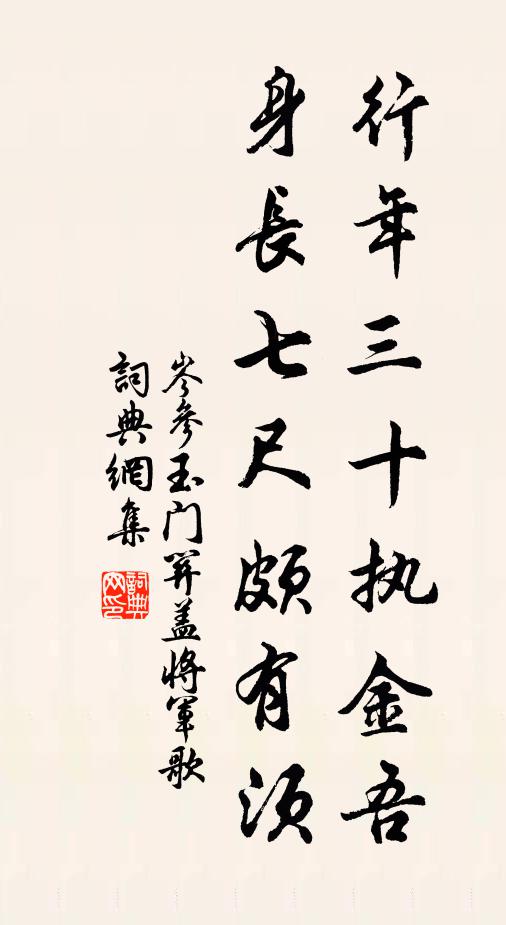 行年三十执金吾
身長七尺頗有须
岑參玉门关盖将軍歌
詞典網集
詞典网印